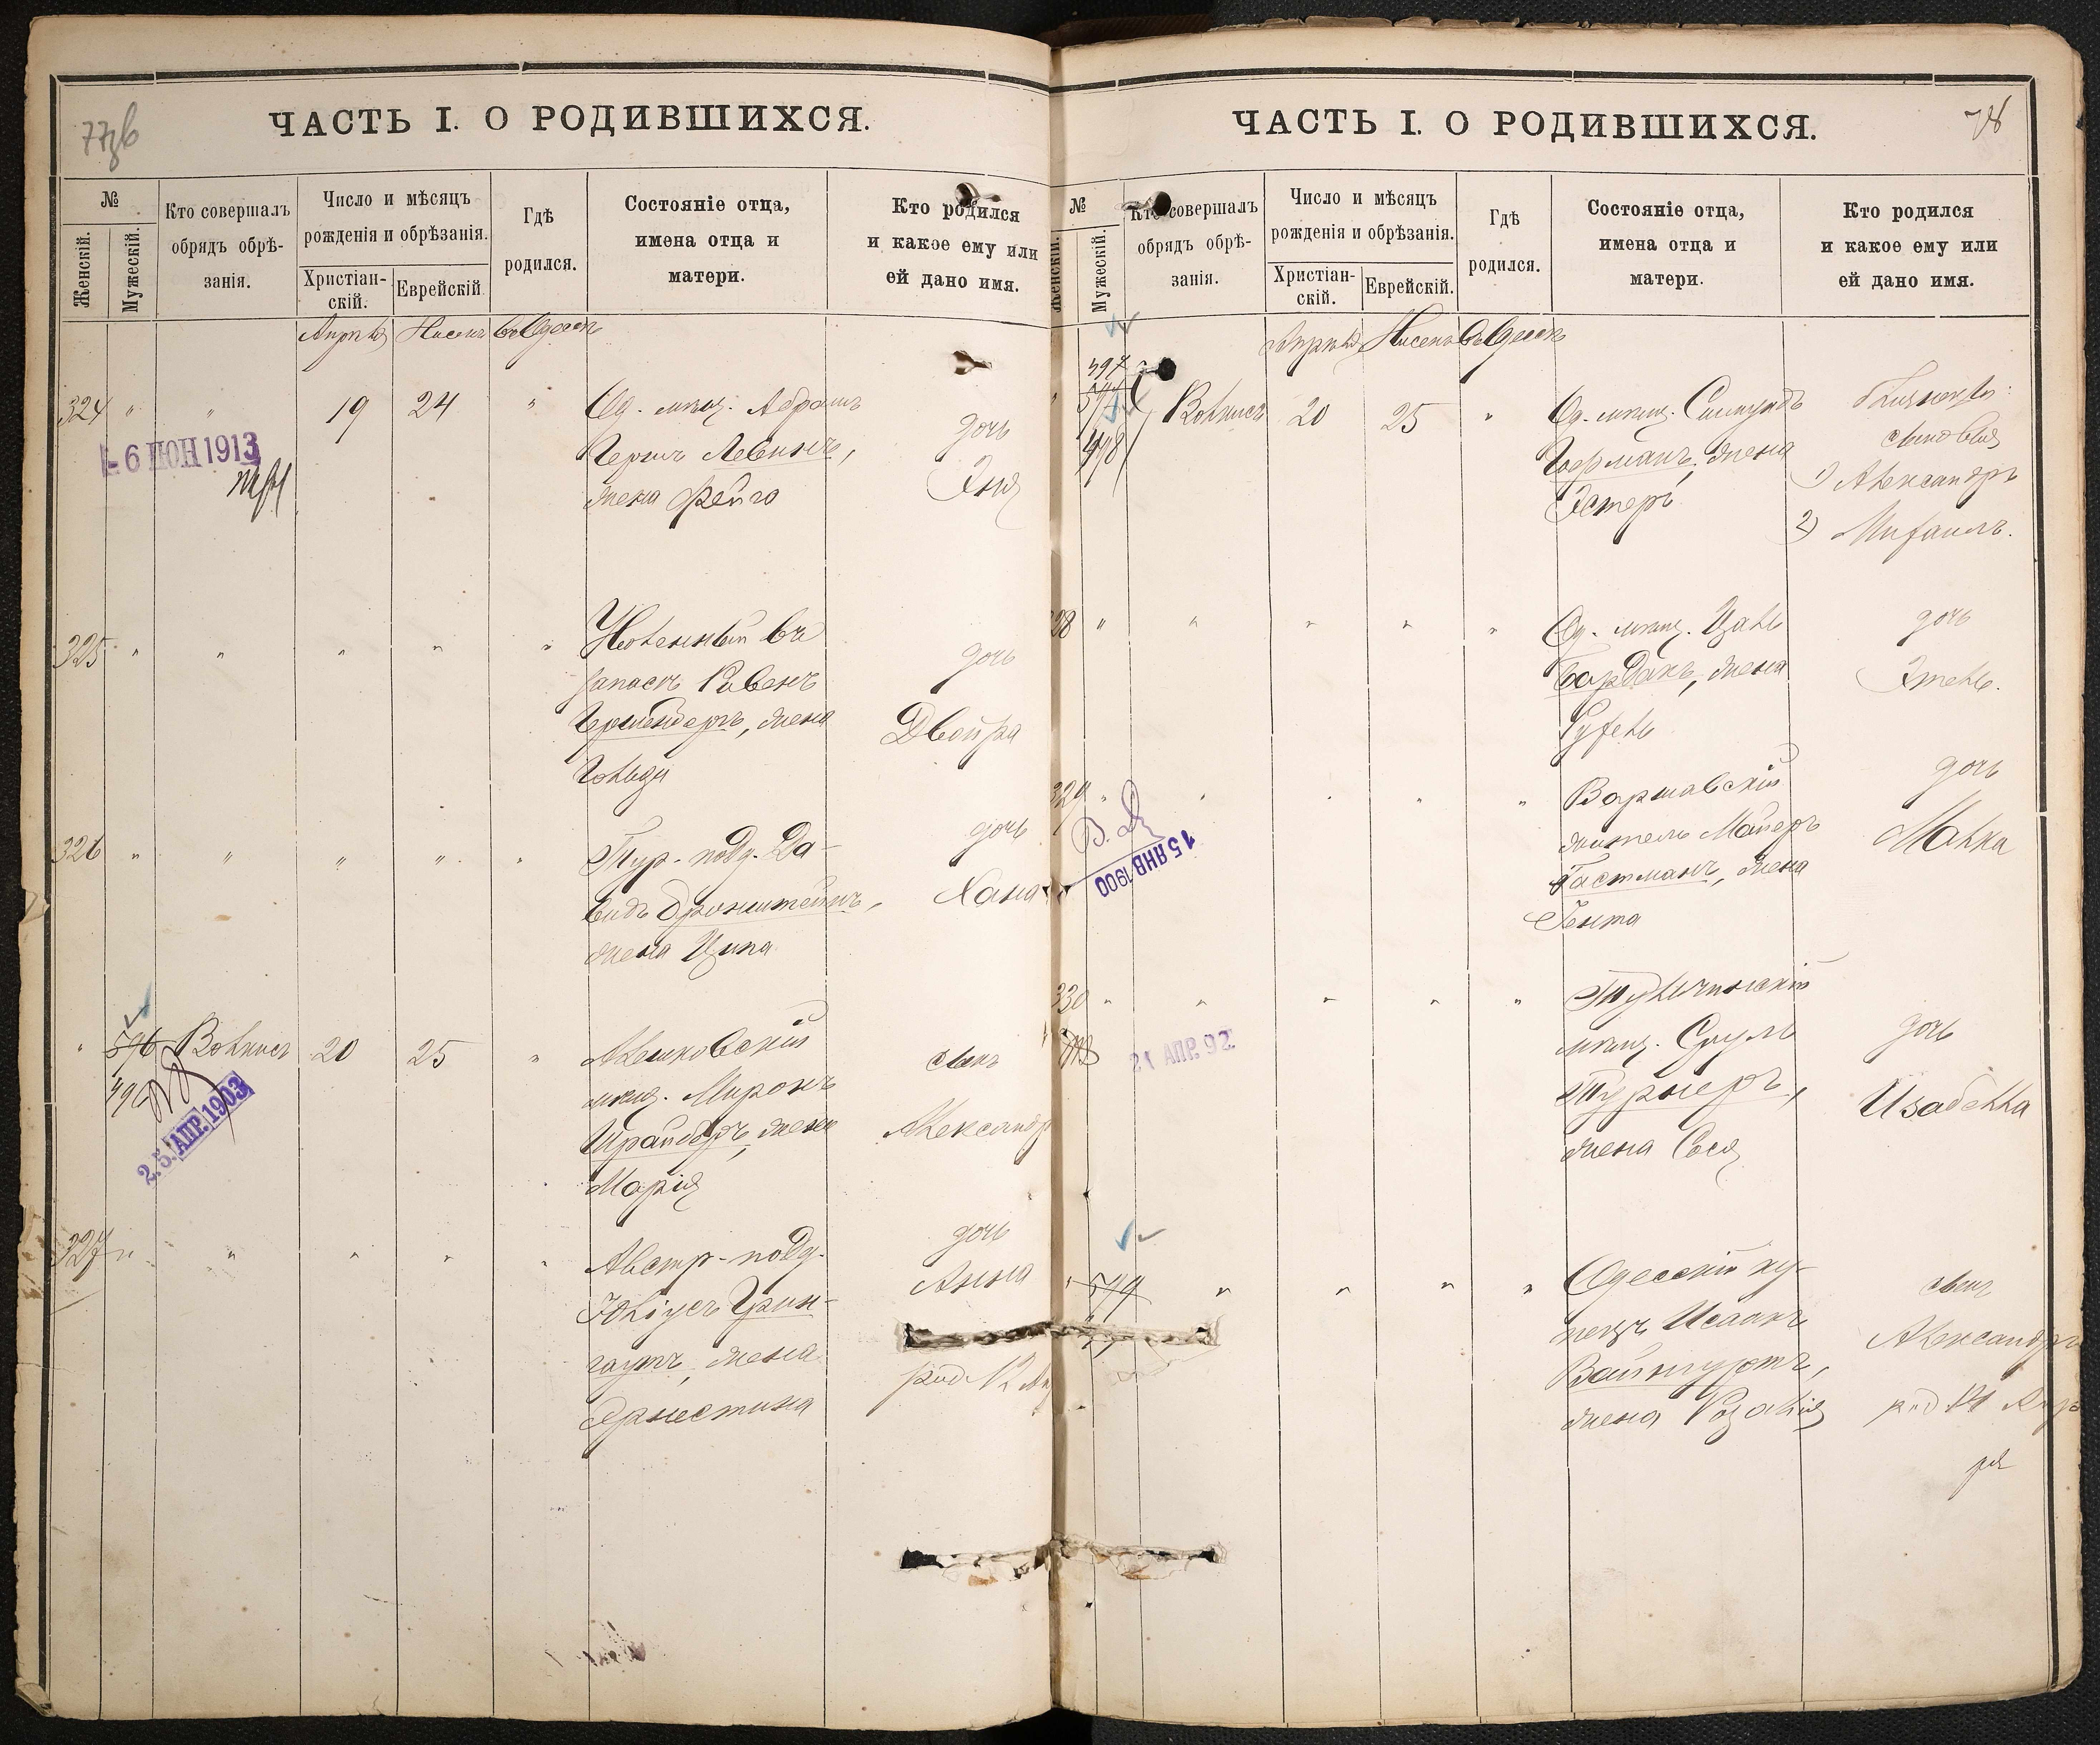 77зв
ЧАСТЬ I. О РОДИВШИХСЯ.
№
Женскій.
Мужескій.
Кто совершалъ
обрядъ обрѣ-
занія.
Число и мѣсяцъ
рожденія и обрѣзанія.
Христіан-
скій.
Еврейскій
Гдѣ
родился.
Состояніе отца,
имена отца и
матери.
Кто родился
и какое ему или
ей дано имя.
Апрѣль Нисенъ въ Одессѣ
324 " " 19 24 "
6 ІЮН 1913
Од. мѣщ. Абрамъ
Гершъ Левинъ,
жена Фейга
дочь
Эня
325 " " " " "
Уволенный въ
запасъ Рувенъ
жена
Гольда
дочь
Двойра
326 " " " " "
Тур. подд. Да-
видъ Бронштейнъ,
жена Ципа
дочь
Хана
" 596 20 25 "
496
25 АПР. 1903
мѣщ. Миронъ
Шрайберъ, жена
Марія
сынъ
Александр
327 " " " " "
Австр-подд.
Юліусъ Грин-
гаутъ, жена
Эрнестина
дочь
Анна
род. 12 Ап
78
ЧАСТЬ I. О РОДИВШИХСЯ.
№
Женскій.
Мужескій.
Кто совершалъ
обрядъ обрѣ-
занія.
Число и мѣсяцъ
рожденія и обрѣзанія.
Христіан-
скій.
Еврейскій.
Гдѣ
родился.
Состояніе отца,
имена отца и
матери.
Кто родился
и какое ему или
ей дано имя.
Апрѣль Нисенъ въ Одессѣ
497
498
20 25 "
Од. мѣщ. Сигмундъ
Горманъ, жена
Эстеръ
Близнецы:
сыновья
1) Александръ
2) Михаилъ.
28 " " " " "
Од. мѣщ. Цаль
Бардакъ, жена
Рухель
дочь
Этель.
329 " " " " "
15 ЯНВ 1900
Варшавскій
житель Майеръ
Гастманъ, жена
Гента
дочь
Малка
330 " " " " "
21 АПР. 92
Тульчинскій
мѣщ. Сруль
Турнеръ,
жена Сося
дочь
Изабелла
" " " " "
Одесскій ку-
пецъ Исаакъ
Вайнгуртъ,
жена Розалія
сынъ
Александръ
род 14 Апр